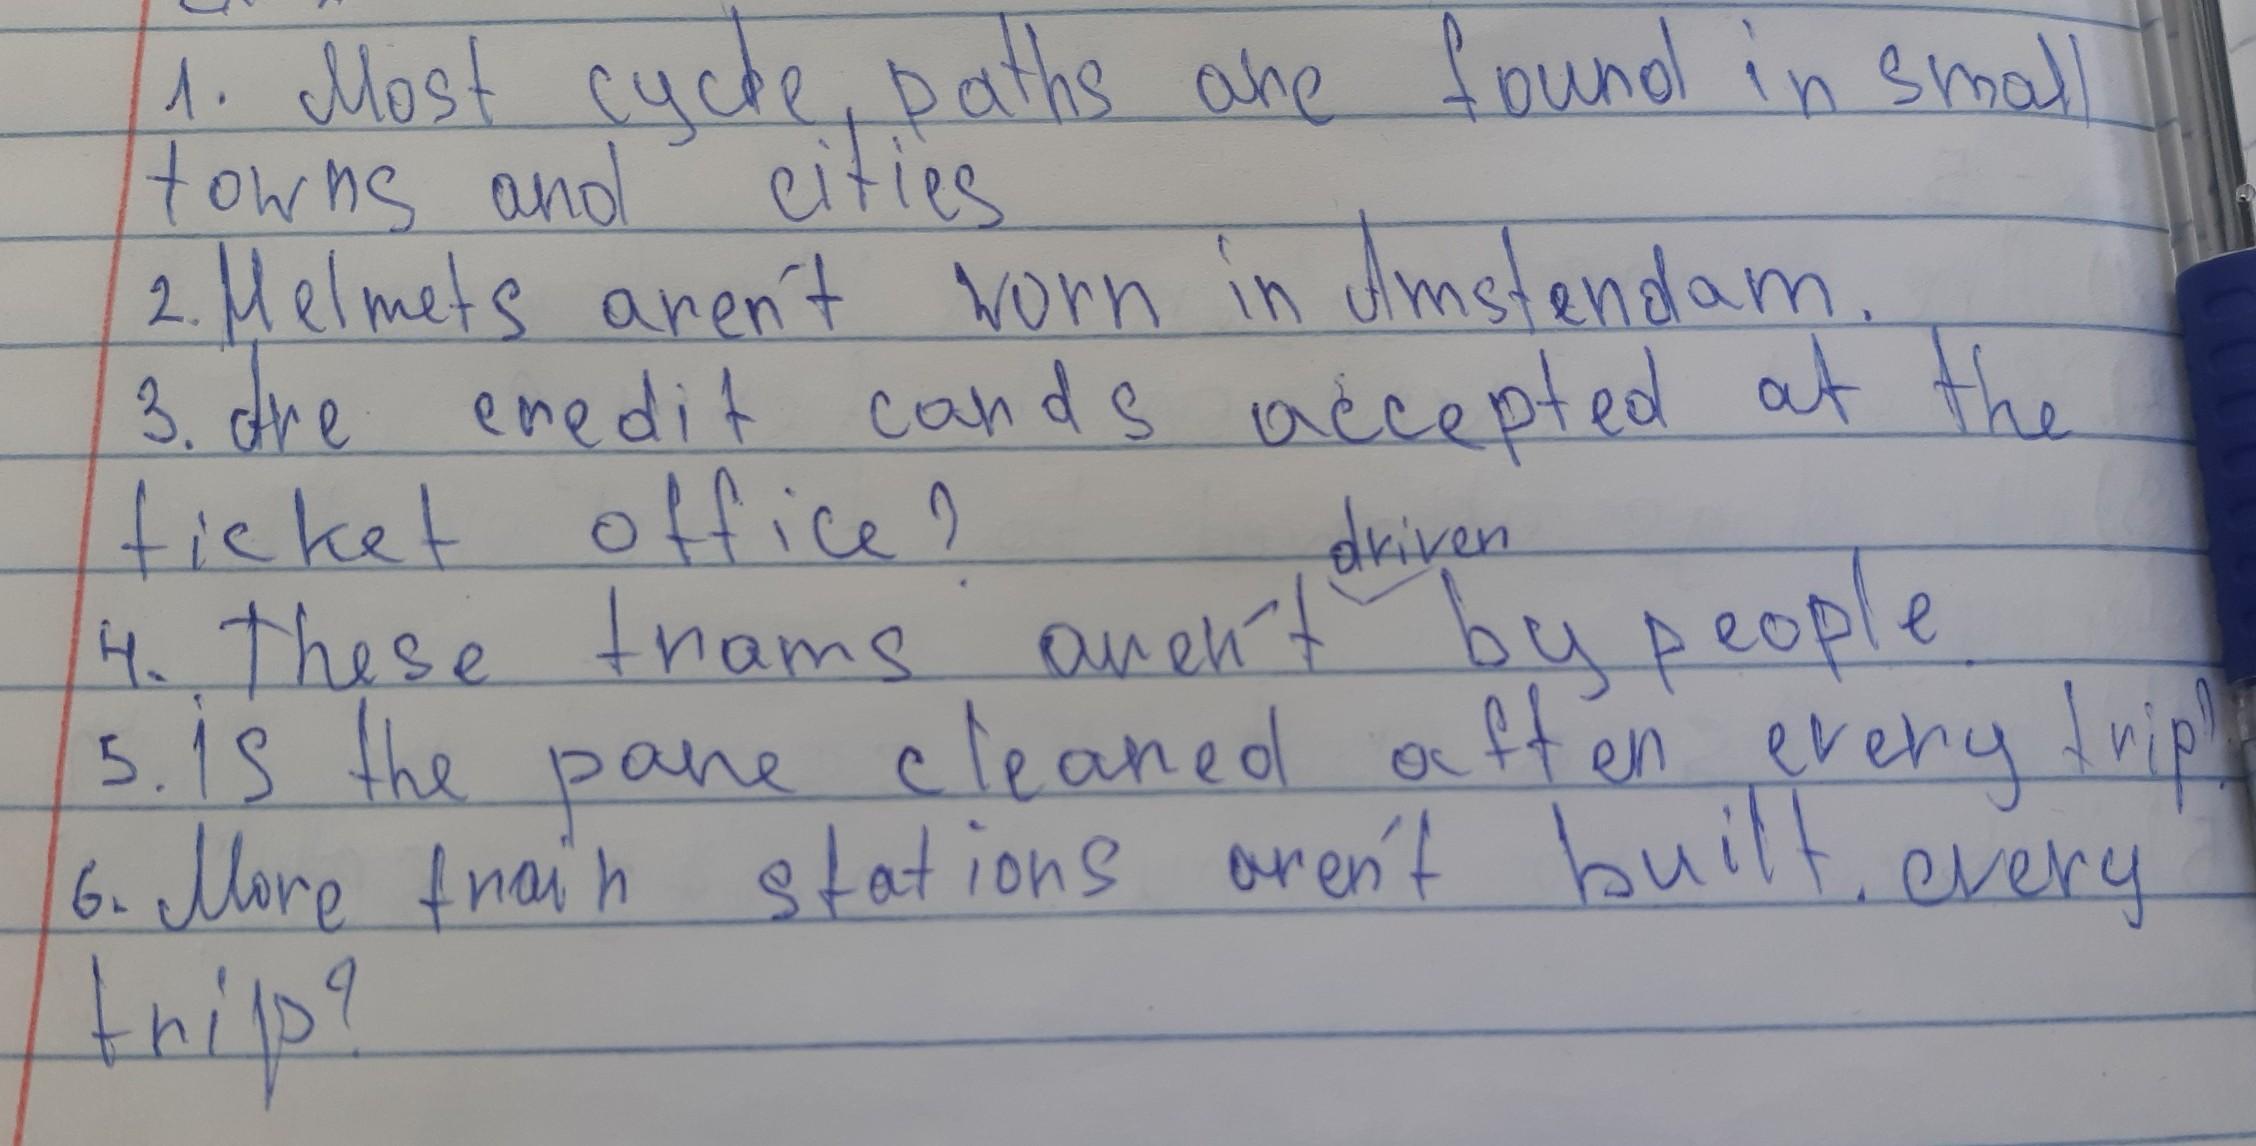 1. Most cycle paths are found in small
towns and cities
2. Helmets aren't worn in Amsterdam.
3. Are credit cards accepted at the
ticket office?
driven
4. These trams aren't by people.
5. is the pane cleaned after every trip?
6. More train stations aren't built. every
trip?